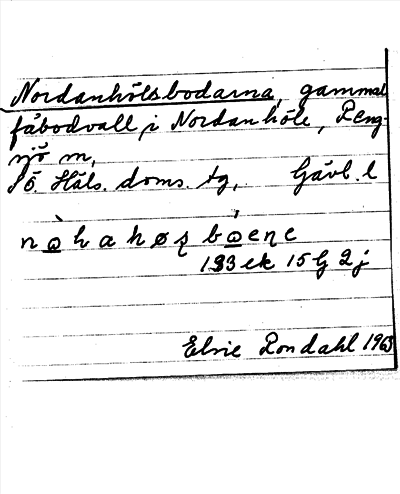 Nordanhölsbodarna, gammal
fäbodvall i Nordanhöle, Reng-
sjö sn,
S. Häls. doms. tg, Gävl. l
133 ek 15 G 2j
Elsie Rondahl 1963